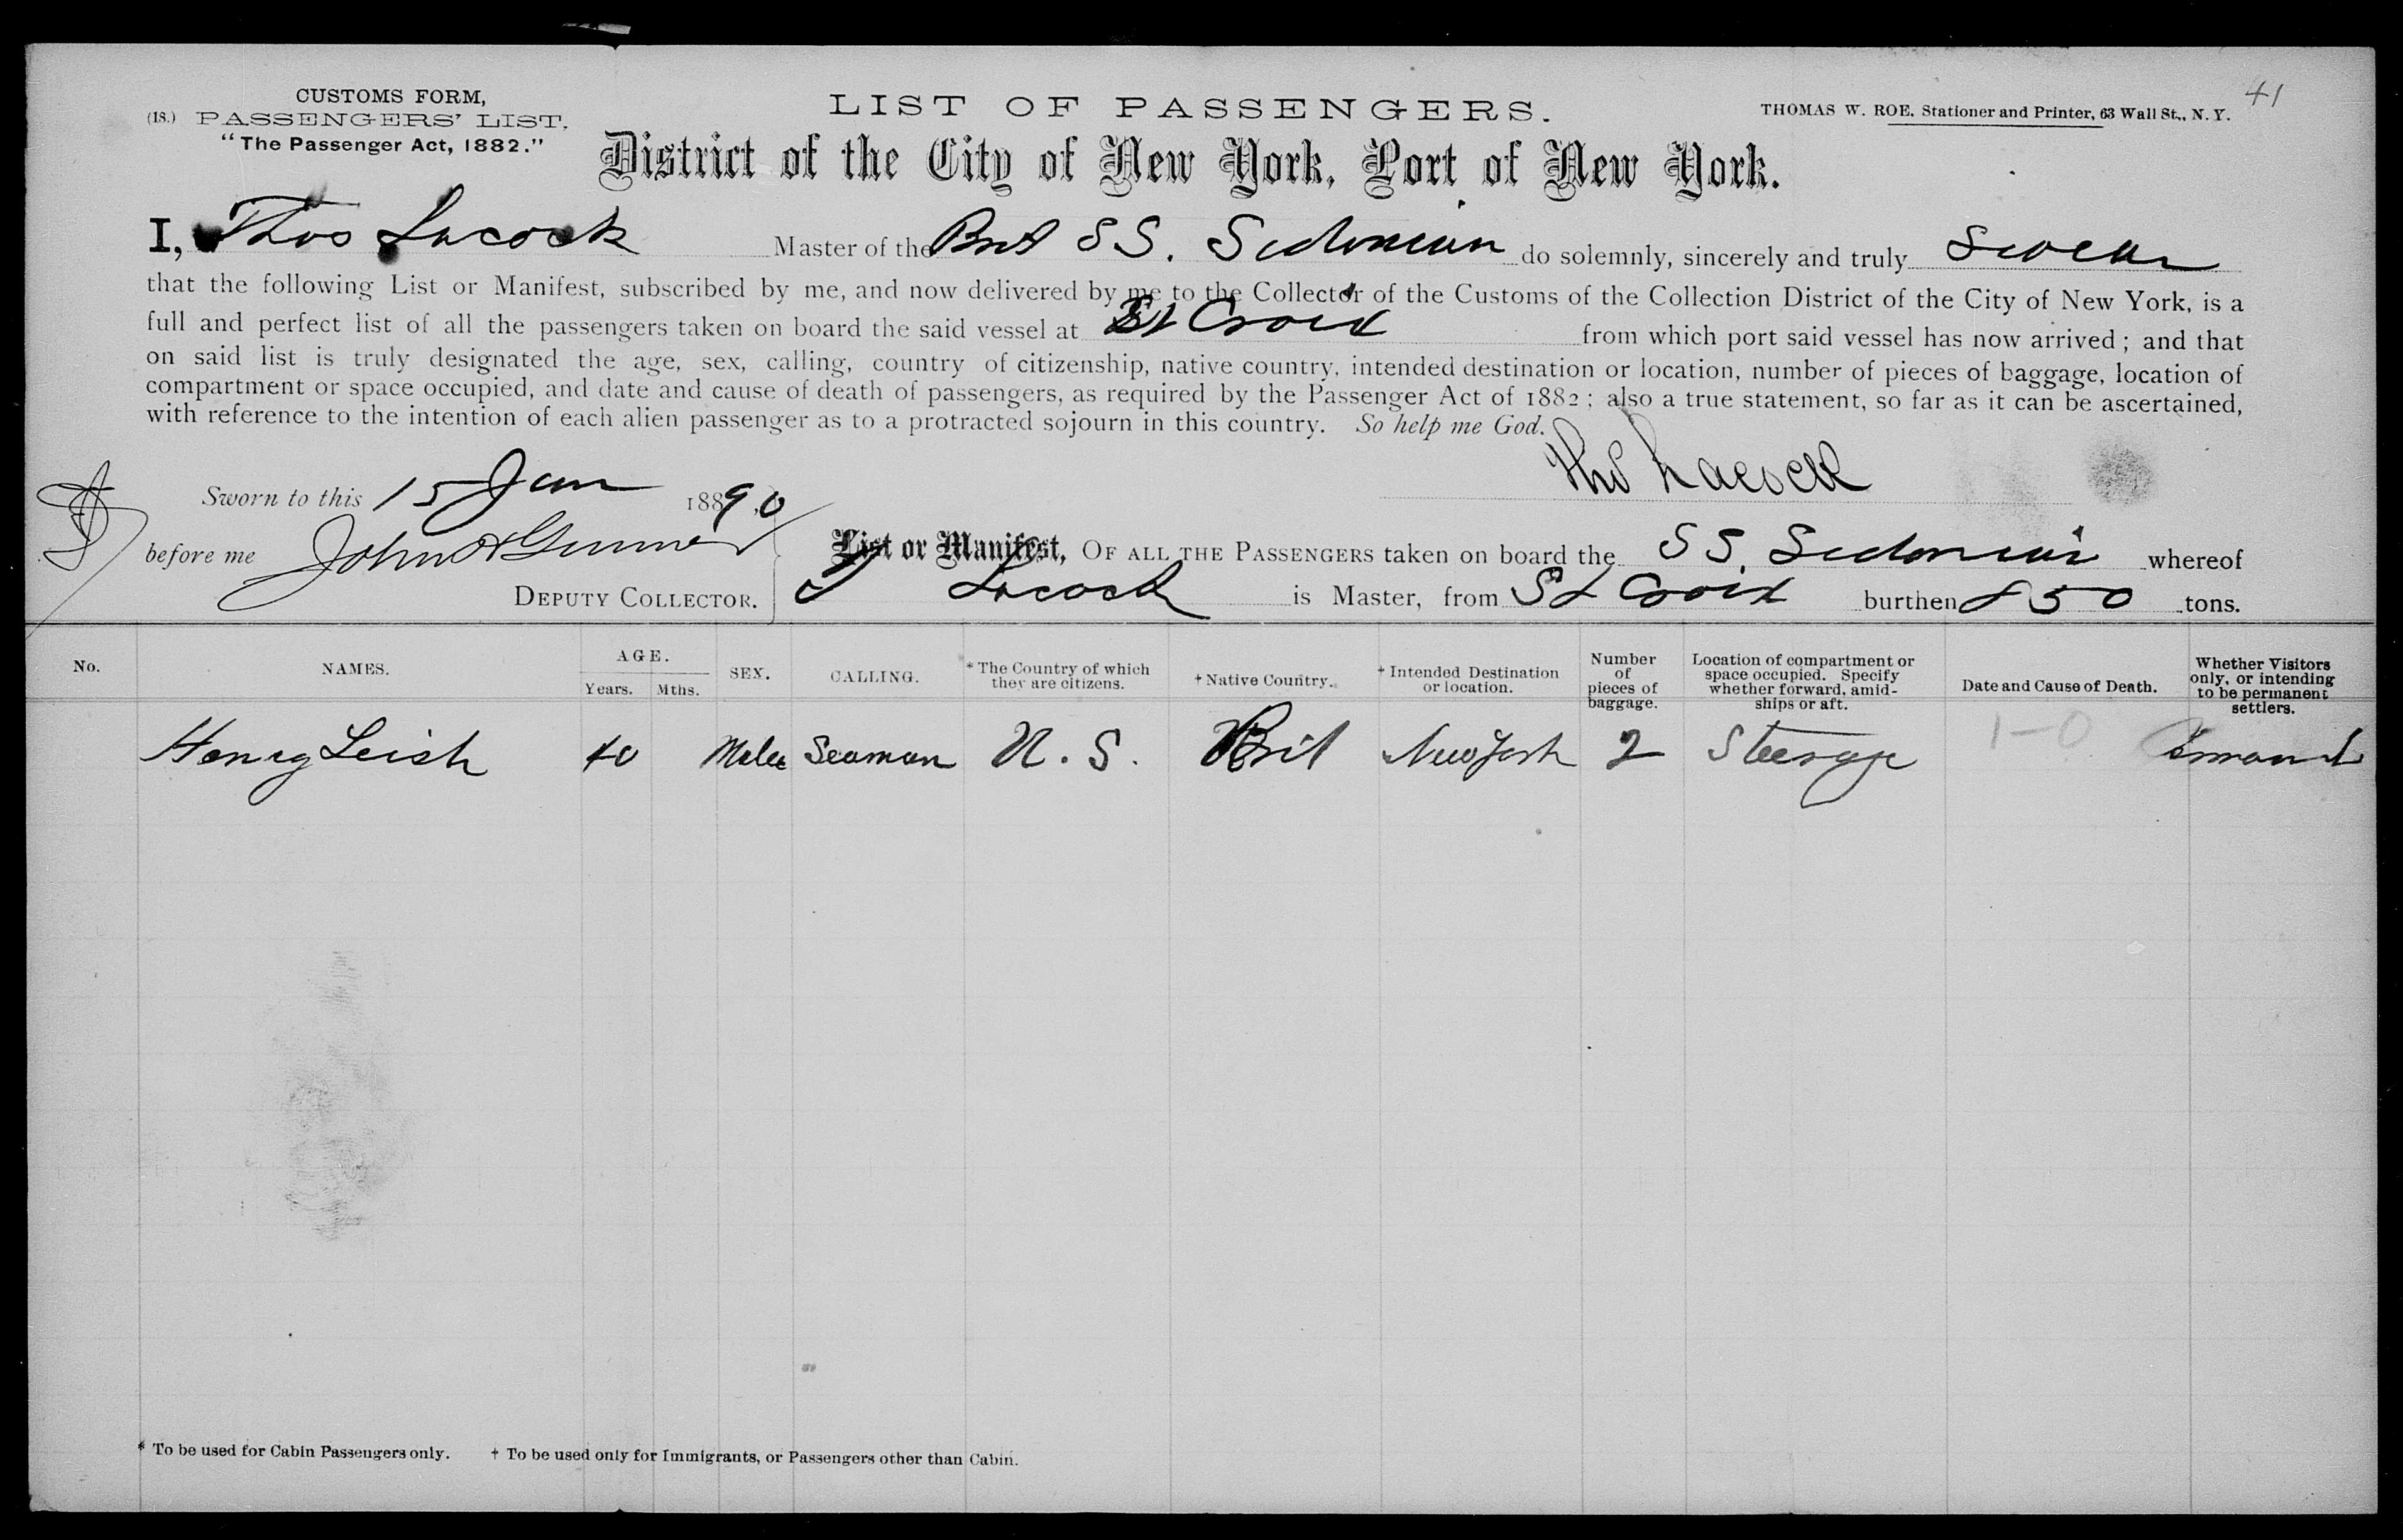 41
CUSTOMS FORM,
(18.) PASSENGERS' LIST,
"The Passenger Act, 1882."
LIST OF PASSENGERS.
THOMAS W. ROE, Stationer and Printer, 63 Wall St., N. Y.
District of the City of New York, Port of New York.
I, Thos Lacock Master of the Brit SS. Sidonian do solemnly, sincerely and truly swear
that the following List or Manifest, subscribed by me, and now delivered by me to the Collector of the Customs of the Collection District of the City of New York, is a
full and perfect list of all the passengers taken on board the said vessel at St Croix from which port said vessel has now arrived; and that
on said list is truly designated the age, sex, calling, country of citizenship, native country, intended destination or location, number of pieces of baggage, location of
compartment or space occupied, and date and cause of death of passengers, as required by the Passenger Act of 1882; also a true statement, so far as it can be ascertained,
with reference to the intention of each alien passenger as to a protracted sojourn in this country. So help me God.
Tho Lacock
Sworn to this 15 Jan 1890
before me John
DEPUTY COLLECTOR.
List or Manifest, OF ALL THE PASSENGERS taken on board the SS. Sidonian whereof
T Lacock is Master, from St Croix burthen 850 tons.
No. NAMES. AGE. Years. Mths. SEX. CALLING. * The Country of which they are citizens. † Native Country. † Intended Destination or location. Number of pieces of baggage. Location of compartment or space occupied. Specify whether forward, amidships or aft. Date and Cause of Death. Whether Visitors only, or intending to be permanent settlers.
Henry Leish 40 Male Seaman U.S. Brit New York 2 Steerage 1-0
* To be used for Cabin Passengers only. † To be used only for Immigrants, or Passengers other than Cabin.